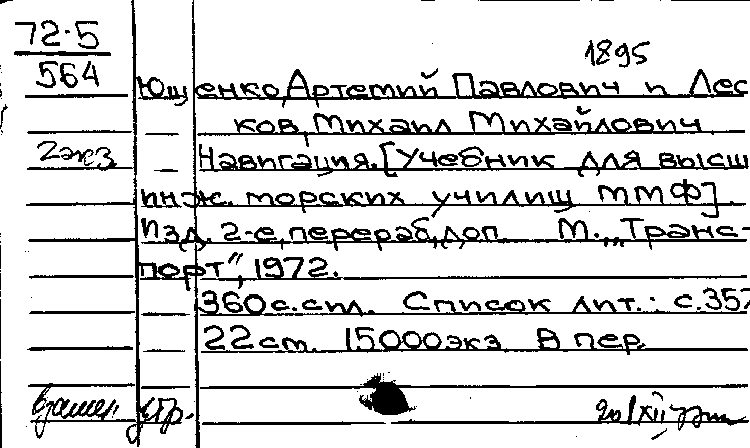 72-5
564
1895
Ющенко, Артемий Павлович и Лес-
ков, Михаил Михайлович
2 экз.
Навигация. [Учебник для высш
инж. морских училищ ММФ].
Изд. 2-е, перераб, доп. М., „Транс-
порт", 1972.
360 с. ил. Список лит.: с. 357
22 см. 15000 экз В пер
взамен утр.
20/XII